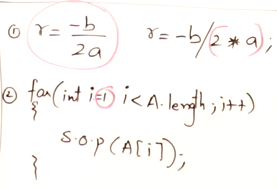 ① r = -b/2a r = -b/(2 * a);
② for(int i=0 i<A.length; i++)
{
S.O.P(A[i]);
}